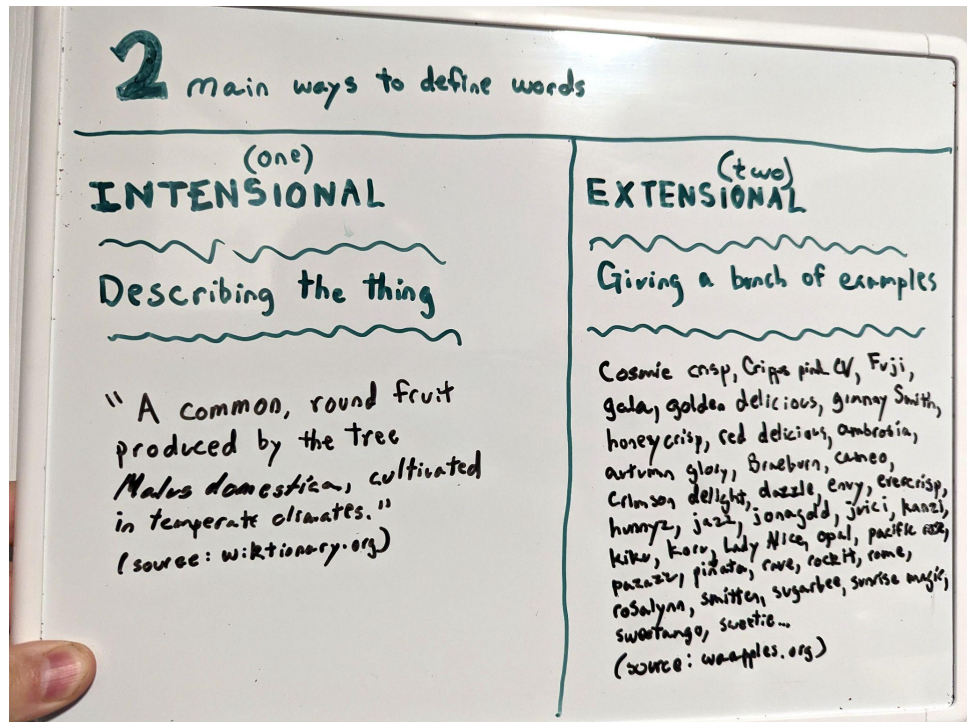 2 main ways to define words
(one)
INTENSIONAL
Describing the thing
"A common, round fruit
produced by the tree
Malus domestica, cultivated
in temperate climates."
(source: wiktionary.org)
(two)
EXTENSIONAL
Giving a bunch of examples
Cosmic crisp, Cripps pink CV, Fuji,
gala, golden delicious, granny Smith,
honeycrisp, red delicious, ambrosia,
autumn glory, Braeburn, cameo,
Crimson delight, dazzle, envy, evercrisp,
hunnyz, jazz, jonagold, juici, kanzi,
kiku, Koru, Lady Alice, opal, pacific rose,
pazazz, piñata, rave, rockit, rome,
rosalynn, smitten, sugarbee, sunrise magic,
sweetango, sweetie...
(source: waapples.org)